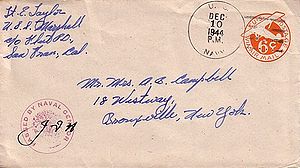 H. E. Taylor
U.S.S. Marshall
c/o F.P.O.
San Fran, Cal.
U. S.
DEC
10
1944
P.M.
NAVY
6¢
AIR MAIL
Mr. Mrs. A. B. Campbell
18 Westway,
Bronxville, New York.
PASSED BY NAVAL CENSOR